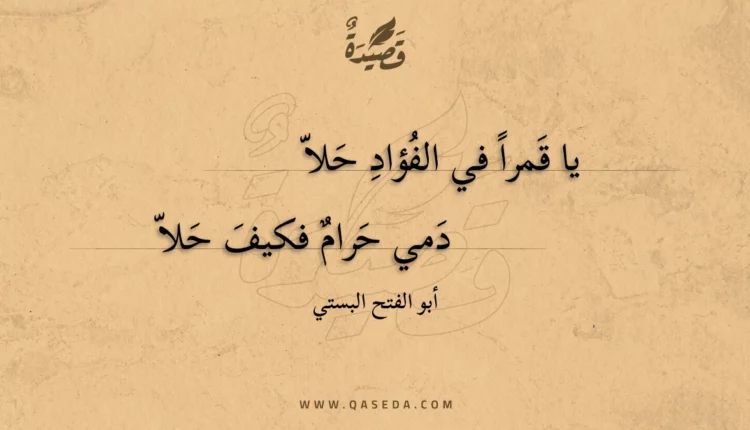 قَصِيْدَةٌ
يا قَمراً في الفُؤادِ حَلاّ
دَمي حَرامٌ فكيفَ حَلاّ
أبو الفتح البستي
WWW.QASEDA.COM